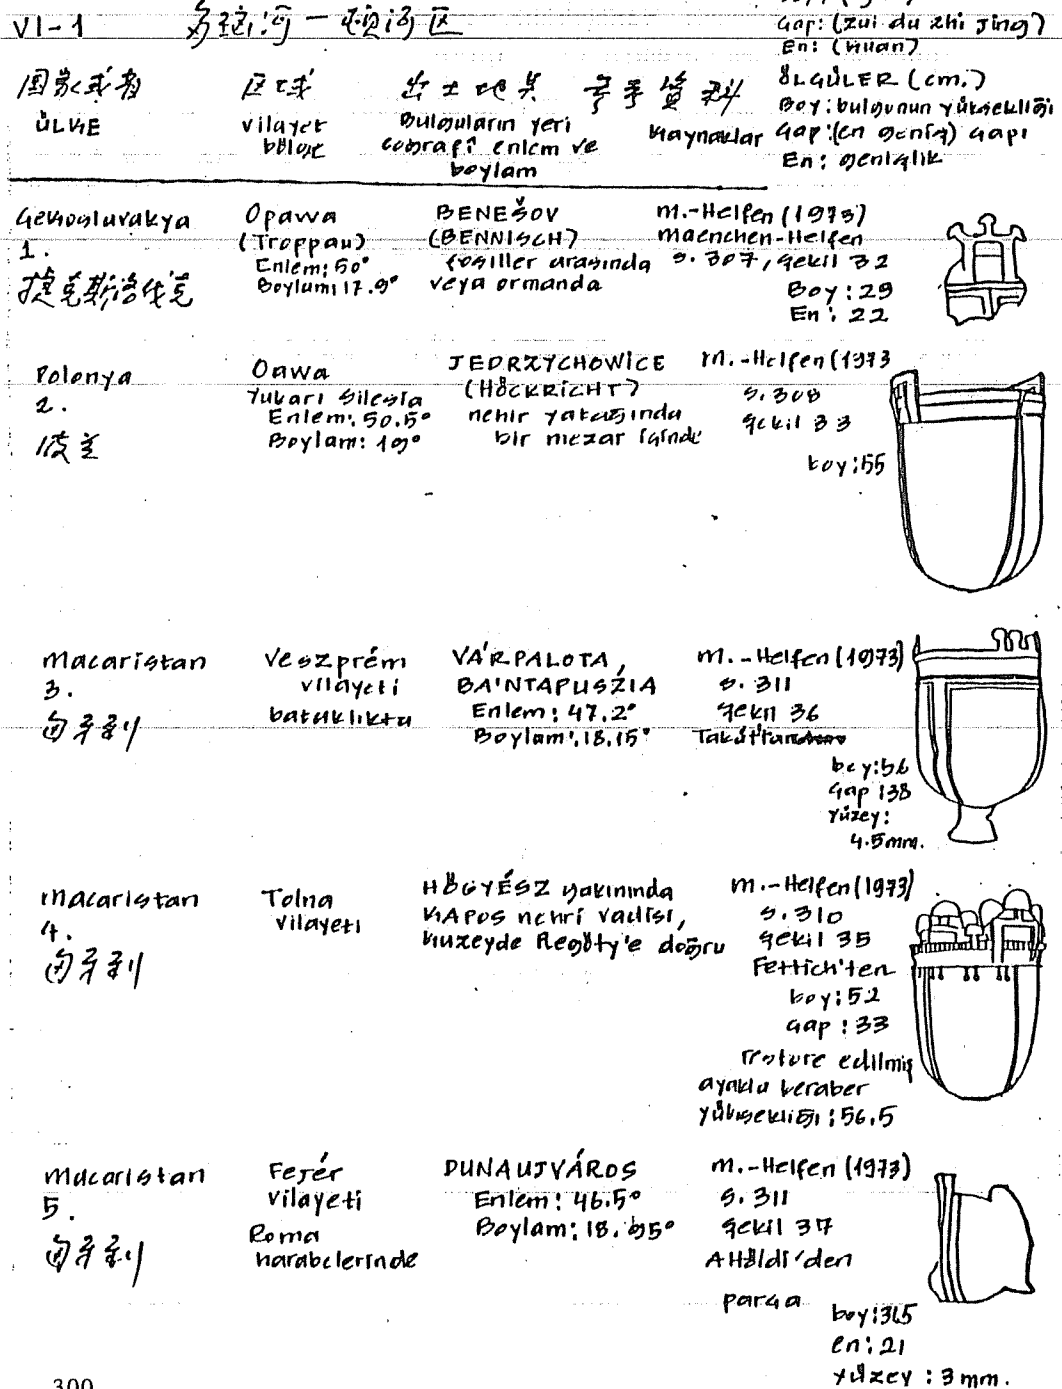 VI-1 多瑙河一顿河区
Gap: (zui du zhi jing)
En: (Kuan)
国家或者 区域 出土地点 资料
ÖLGÜLER (cm.)
ÜLKE
vilayet
bölge
Bulguların yeri
coğrafi enlem ve
boylam
Kaynaklar
Boy: bulgunun yüksekliği
Gap: (en geniş) Gapı
En: genişlik
Gekoslavakya
1.
捷克斯洛伐克
Opawa
(Troppau)
Enlem: 50°
Boylam: 17.9°
BENEŠOV
(BENNISCH)
fosiller arasında
veya ormanda
M.-Helfen (1973)
Maenchen-Helfen
s. 307, şekil 32
Boy: 29
En: 22
Polonya
2.
波兰
Oawa
Yukarı Silesia
Enlem: 50.5°
Boylam: 19°
JEDRZYCHOWICE
(HÖCKRICHT)
nehir yatağında
bir mezar içinde
M.-Helfen (1973
s. 308
şekil 33
boy: 55
Macaristan
3.
匈牙利
Veszprém
vilayeti
bataklıkta
VÁRPALOTA,
BÁNTAPUSZIA
Enlem: 47.2°
Boylam: 18.15°
M.-Helfen (1973)
s. 311
şekil 36
boy: 56
Gap: 38
Yüzey:
4.5 mm.
Macaristan
4.
匈牙利
Tolna
vilayeti
HÖGYÉSZ yakınında
KAPOS nehri vadisi,
kuzeyde Regöly'e doğru
M.-Helfen (1973)
s. 310
şekil 35
Fettich'ten
boy: 52
Gap: 33
restore edilmiş
ayakla beraber
yüksekliği: 56.5
Macaristan
5.
匈牙利
Fejér
vilayeti
Roma
harabelerinde
DUNAUJVÁROS
Enlem: 46.5°
Boylam: 18.
M.-Helfen (1973)
s. 311
şekil 37
AHöldi'den
parça
boy:
en: 21
Yüzey: 3 mm.
300